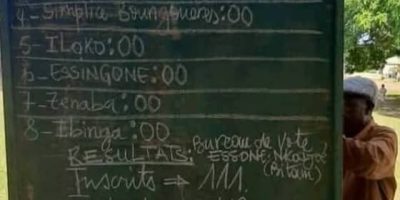 4-Simplice Boungouères:00
5-ILOKO:00
6-ESSINGONE:00
7-Zénaba:00
8-Ibinga:00
RESULTATS: Bureau de Vote
ESSONE-Nkadjoé
(Bitam)
Inscrits ⇒ 111.